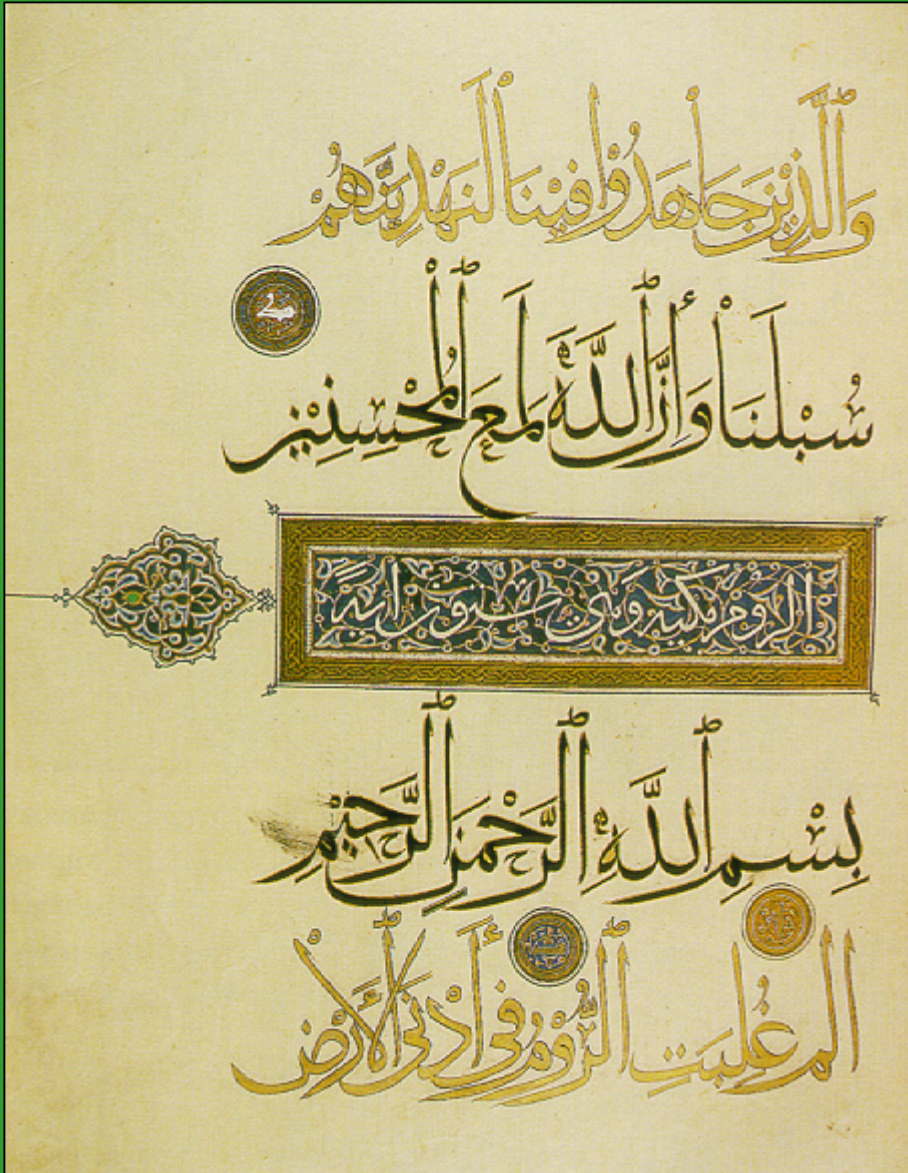 وَٱلَّذِيْنَ جَاهَدُوْا فِيْنَا لَنَهْدِيَنَّهُمْ
سُبُلَنَا وَإِنَّ ٱللَّهَ لَمَعَ ٱلْمُحْسِنِيْنَ
الروم مكية وهي ستون اية
بِسْمِ ٱللَّهِ ٱلرَّحْمَنِ ٱلرَّحِيْمِ
الم غُلِبَتِ ٱلرُّوْمُ فِي أَدْنَى ٱلْأَرْضِ